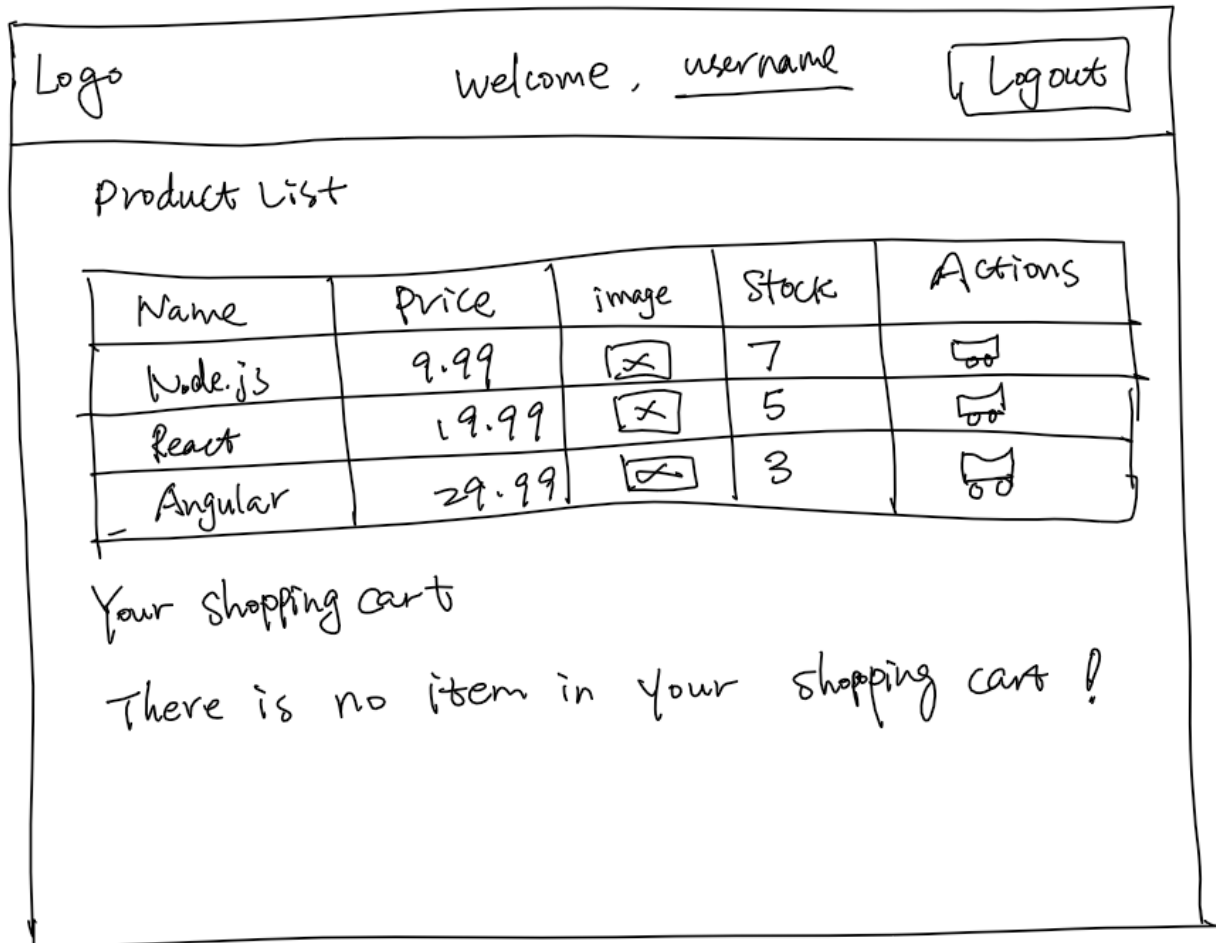 Logo Welcome, username Logout
Product List
Name Price image Stock Actions
Node.js 9.99 7
React 19.99 5
Angular 29.99 3
Your shopping cart
There is no item in your shopping cart!